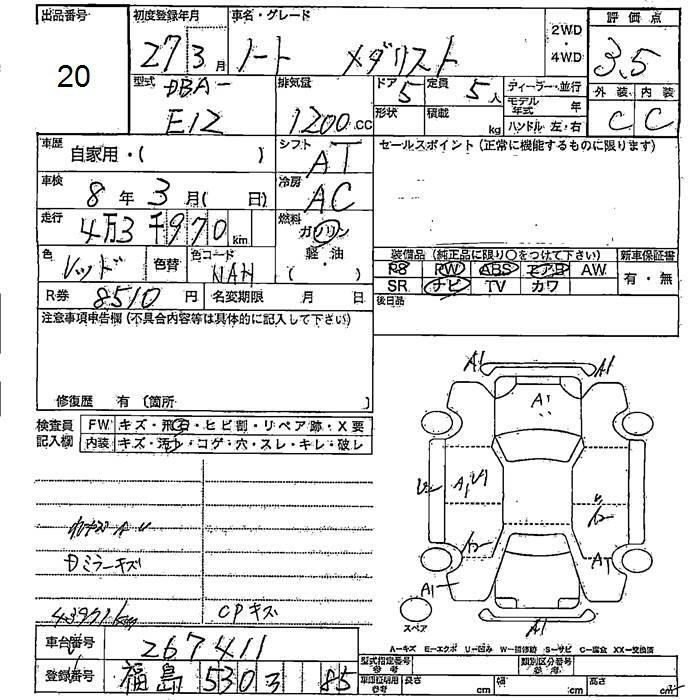 出品番号
20
初度登録年月
27 3月
車名・グレード
ノート メダリスト
2WD
・
4WD
評価点
3.5
外装 内装
C C
型式
DBA-
E12
排気量
1200 cc
ドア
5
定員
5人
形状
積載
kg
ディーラー・並行
モデル年式 年
ハンドル 左・右
車歴
自家用・( )
シフト
AT
セールスポイント (正常に機能するものに限ります)
車検
8年 3月( 日)
冷房
AC
走行
4万3千970km
燃料
ガソリン
軽・油
・
( )
色
レッド
色替
色コード
NAH
R券 8510円
名変期限 月 日
装備品 (純正品に限り○をつけて下さい)
新車保証書
PS PW ABS エアB AW
SR ナビ TV カワ
有・無
後日品
注意事項申告欄 (不具合内容等は具体的に記入して下さい)
修復歴 有 〔箇所 〕
検査員
記入欄
FW キズ・飛石・ヒビ割・リペア跡・X要
内装 キズ・汚れ・コゲ・穴・スレ・キレ・破レ
Dミラーキズ
43971km
CPキズ
A1
A1
A1
A1
A1
A1
スペア
A-キズ E-エクボ U-凹み W-補修跡 S-サビ C-腐食 XX-交換済
車台番号
267411
登録番号
福島 530 ろ 85
型式指定番号
参考
類別区分番号
参考
車庫証明用
参考
長さ cm
幅 cm
高さ cm